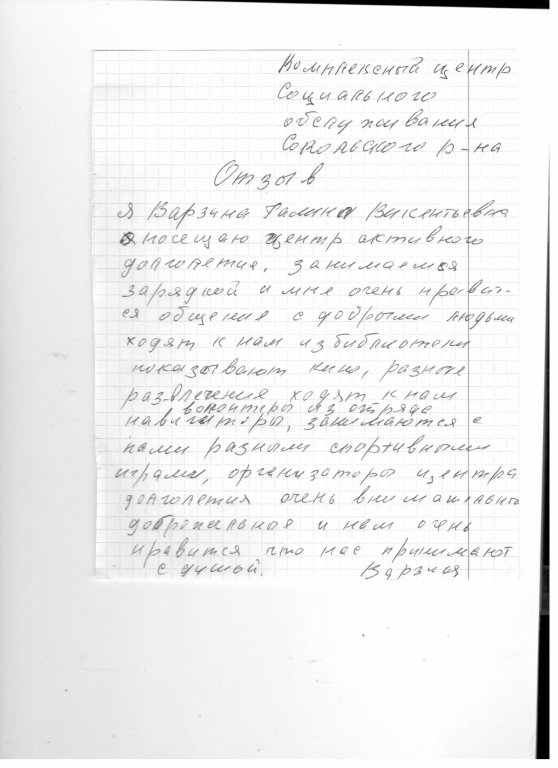 Комплексный центр
Социального
обслуживания
Сокольского р-на
Отзыв
Я Варзина Галина Викентьевна
посещаю центр активного
долголетия, занимаемся
зарядкой и мне очень нравит-
ся общение с добрыми людьми
ходят к нам из библиотеки
показывают кино, разные
развлечения ходят к нам
волонтеры из отряда
навигаторы, занимаются с
нами разными спортивными
играми, организаторы центра
долголетия очень внимательные
доброжелательные и нам очень
нравится что нас принимают
с душой. Варзина